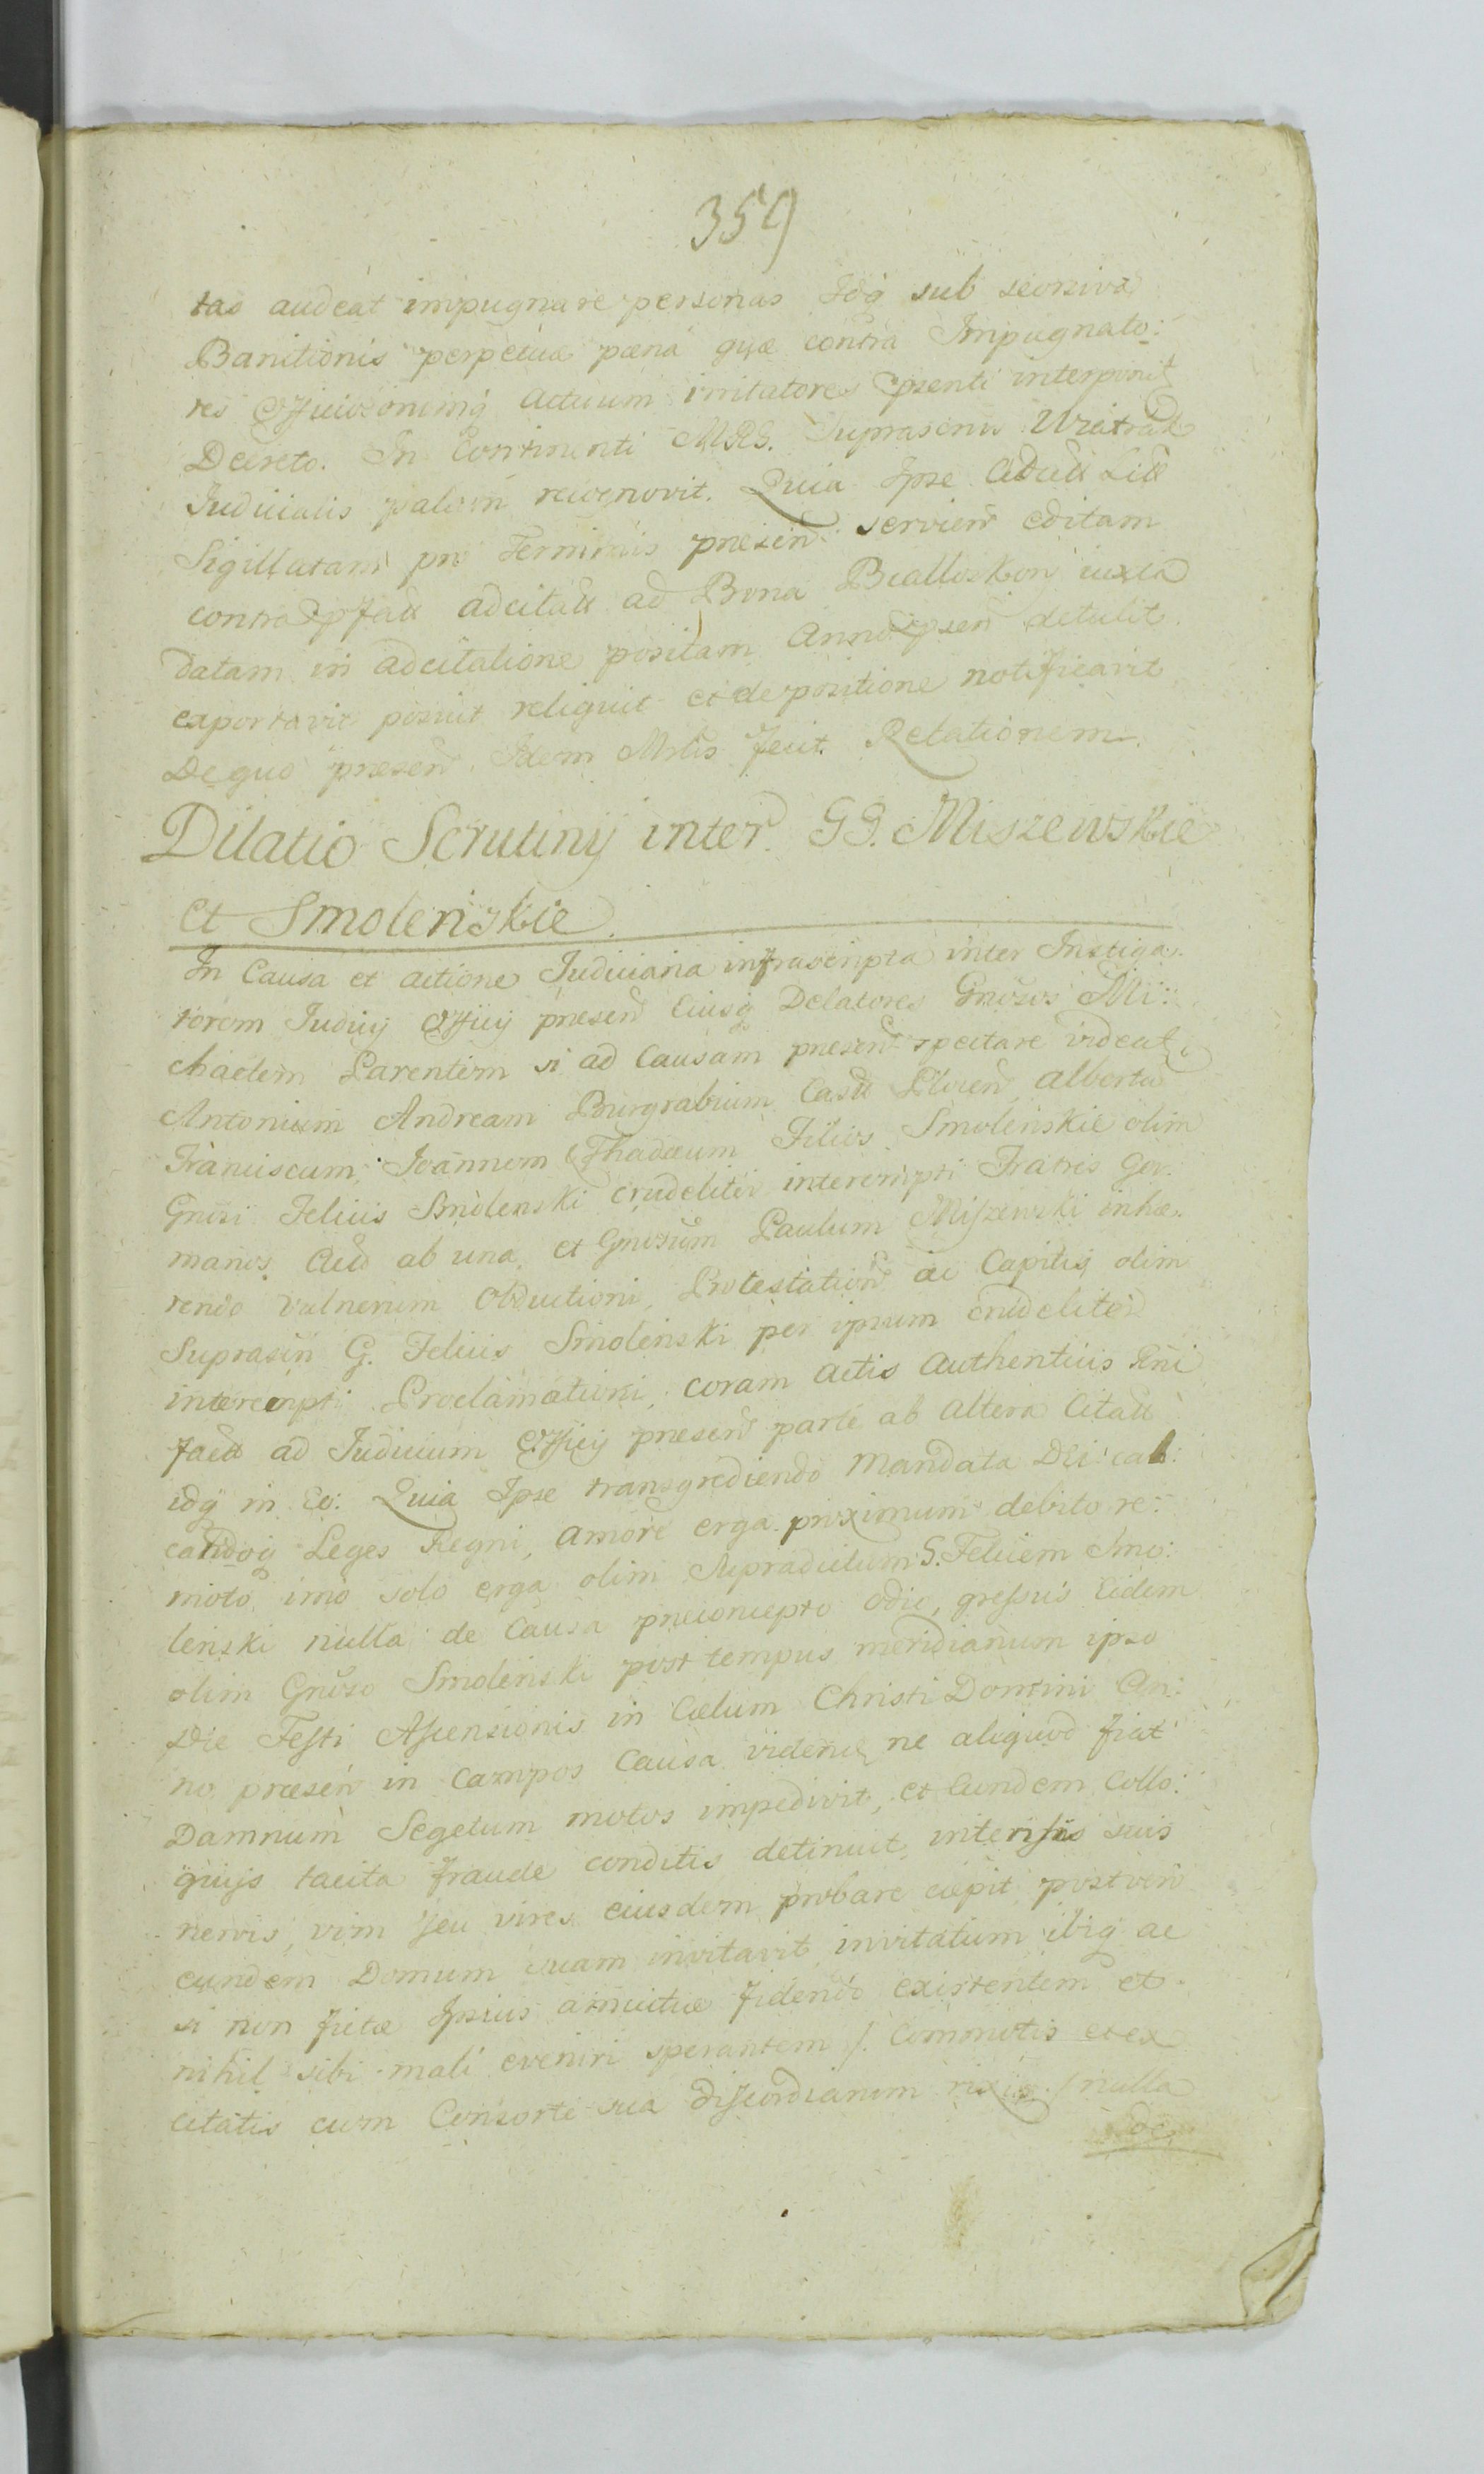 359
tas audeat impugnare personas Idq sub seorsiva
Banitionis perpetuæ pœna quæ contra Impugnato:
res Officiosorumq Actuum irritatores pnsenti interponit
Decreto. In Continenti MRS. Suprascriptus Wiatrak
Judicialis palam recognovit. Quia Ipse Adcitt Litt
Sigillatam pro Terminis præsen servien editam
contra adcitatt ad Bona Bialloskory iuxta
datam in adcitatione positam Anno psen detulit
exportavit posuit reliquit et de positione notificavit
De quo præsen Idem Mrlis fecit Relationem.
Dilatio Scrutiny inter GG. Miszewskie
et Smolenskie.
In Causa et actione Judiciaria infrascripta inter Instiga:
torem Judicij Officij præsen Eiusq Delatores Gnosos Mi:
chaelem Parentem si ad Causam præsen spectare videat,
Antonium Andream Burgrabium Castr Plocen, Albertu
Franciscum, Joannem Thadæum Filios Smolenskie olim
Gnosi Felicis Smolenski crudeliter interempti Fratres Ger:
manos Act ab una, et Gnosum Paulum Miszewski inhæ:
rendo vulnerum Obductioni, Protestation ac Capitis olim
Suprascri G. Felicis Smolenski per ipsum crudeliter
interempti Proclamationi, coram Actis Authenticis Rni
fact ad Judicium Officij præsen parte ab altera Citatt
idq in Eo: Quia Ipse transgrediendo Mandata Dei cal:
candoq Leges Regni, amore erga proximum debito re:
moto imo solo erga olim Supradictum G. Felicem Smo:
lenski nulla de Causa præconcepto odio, gressus Eidem
olim Gnoso Smolenski post tempus meridianum ipso
Die Festi Ascensionis in Cælum Christi Domini An:
no præsen in Campos Causa videndi ne aliquod fiat
Damnum Segetum motos impedivit, et Eundem Collo:
quijs tacita fraude conditis detinuit, intensis suis
nervis, vim seu vires eiusdem probare cæpit postvero
eundem Domum suam invitavit invitatum ibiq ac
si non fictæ Ipsius amicitiæ fidendo existentem et
nihil sibi mali eveniri sperantem /: Commotis et ex
citatis cum Consorte sua discordiarum rixis :/ nulla
de